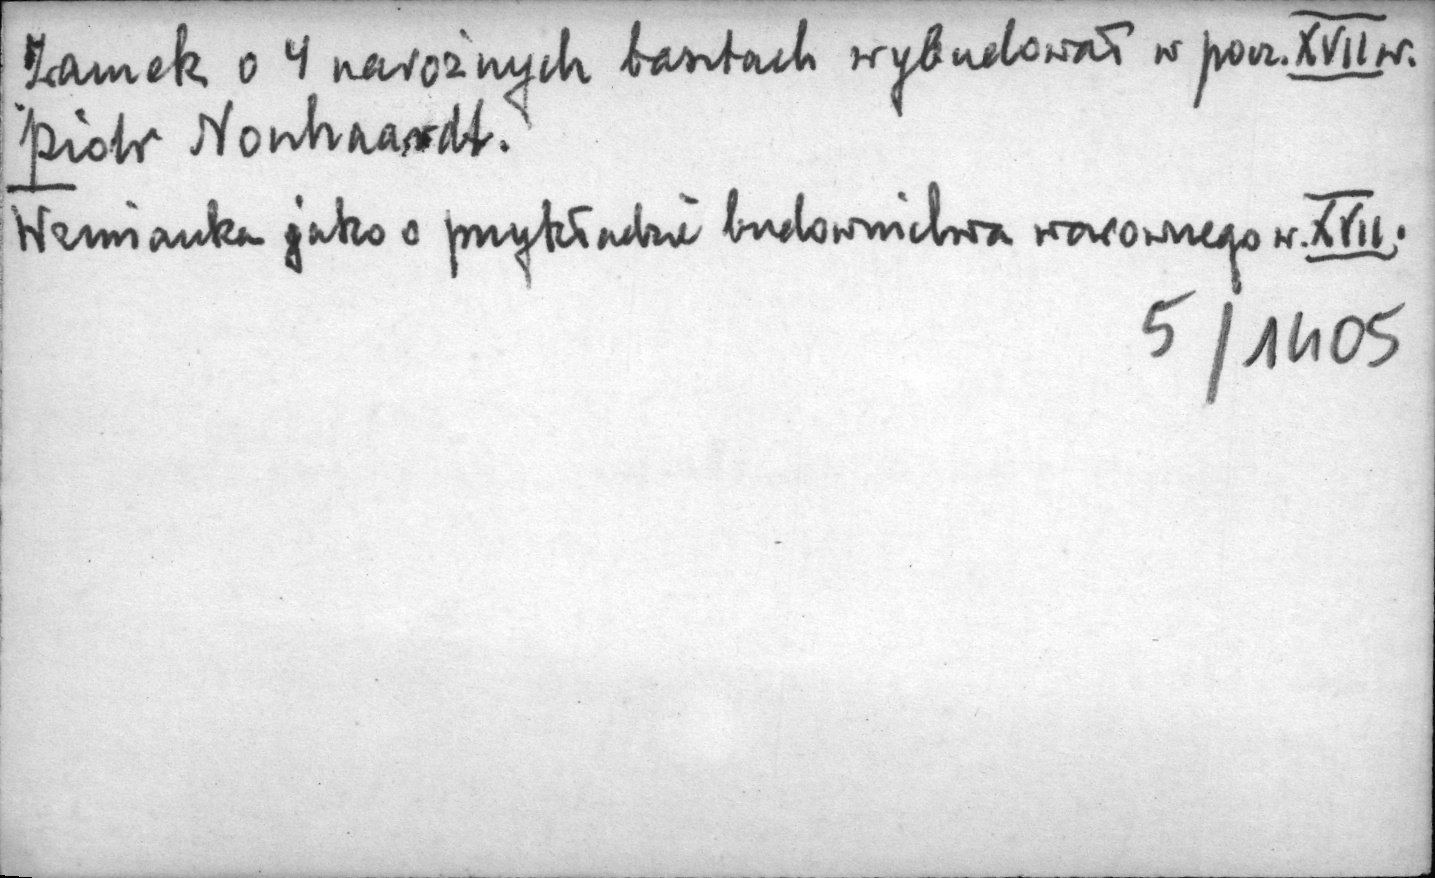 Zamek o 4 narożnych basztach wybudował w pocz. XVII w.
Piotr Nonhaardt.
Wzmianka jako o przykładzie budownictwa warownego w. XVII.
5/1405